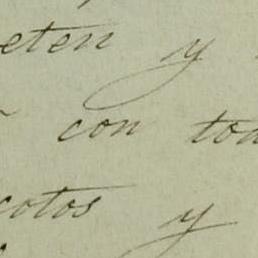 eten y
con tod
cotos y